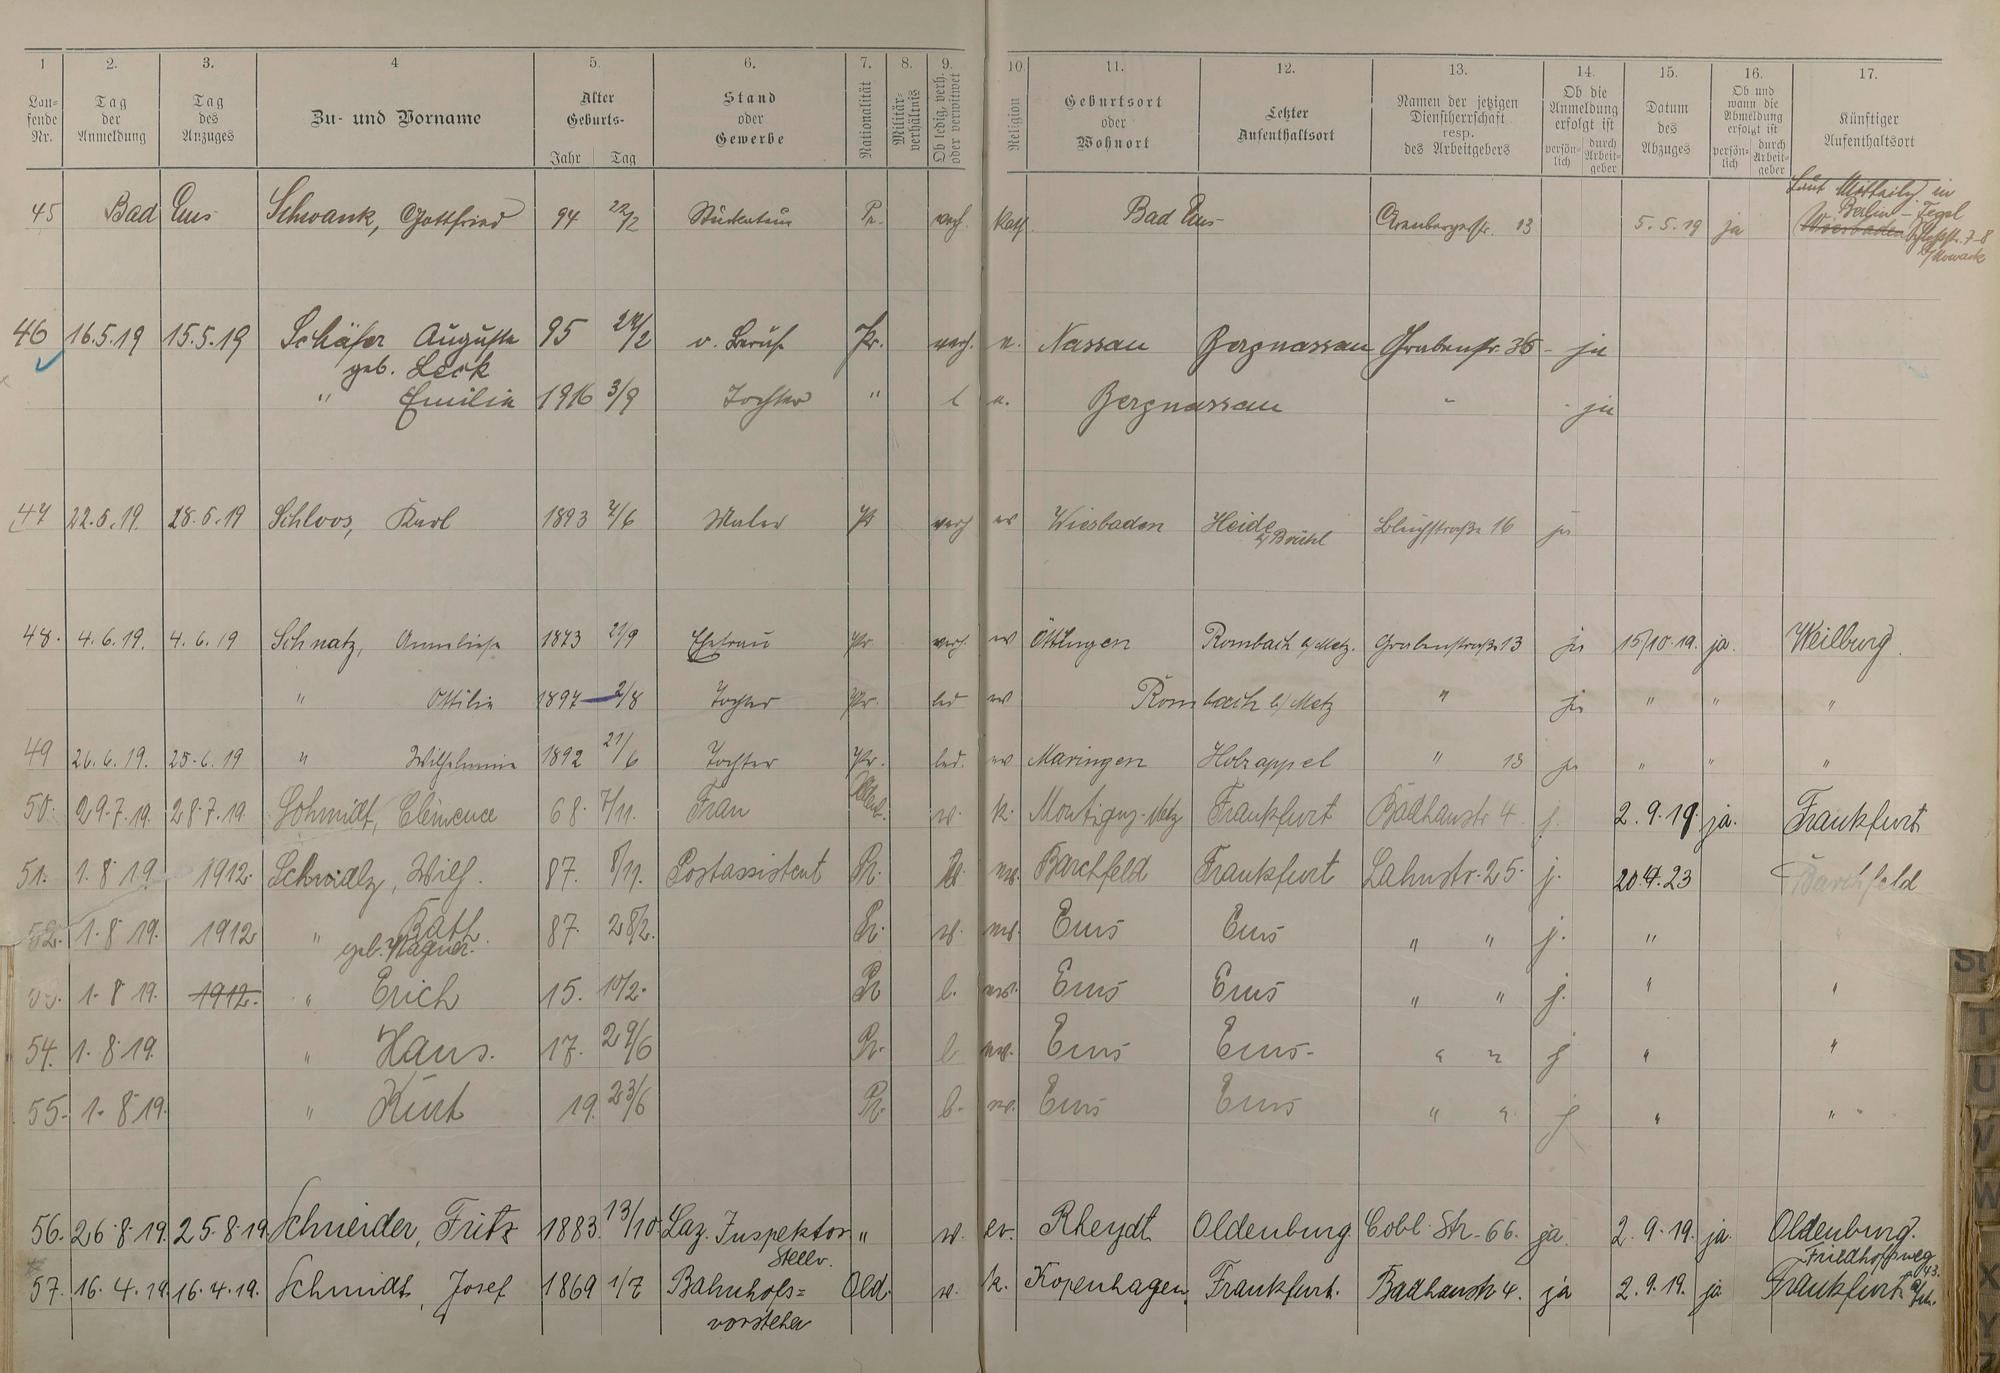 1 2. 3. 4 5. 6. 7. 8. 9. 10 11. 12. 13. 14. 15. 16. 17.
Lau-
fende
Nr.
Tag
der
Anmeldung
Tag
des
Anzuges
Zu- und Vorname
Alter
Geburts-
Jahr Tag
Stand
oder
Gewerbe
Nationalität
Militär-
verhältnis
Ob ledig, verh.
oder verwitwet
Religion
Geburtsort
oder
Wohnort
Letzter
Aufenthaltsort
Namen der jetzigen
Dienstherrschaft
resp.
des Arbeitgebers
Ob die
Anmeldung
erfolgt ist
persön-
lich
durch
Arbeit-
geber
Datum
des
Abzuges
Ob und
wann die
Abmeldung
erfolgt ist
persön-
lich
durch
Arbeit-
geber
Künftiger
Aufenthaltsort
Laut Mitteilg in
Berlin-Tegel
45 Bad Ems Schwank, Gottfried 94 22/2 Pr. verh. kath. Bad Ems 13 5.5.19 ja Wiesbaden 7-8
46 16.5.19 15.5.19 Schäfer Auguste 95 o. Beruf Pr. verh. e. Nassau Bergnassau Grabenstr. 36 - ja
geb. Leck
" Emilie 1916 3/9 Tochter " l e. Bergnassau " ja
47 22.5.19. 28.5.19 Schloos, Karl 1893 Maler Pr verh ev Wiesbaden Heide 16 ja
b/ Brühl
48. 4.6.19. 4.6.19 Schnatz, Anneliese 1873 21/9 Ehefrau Pr. verh. ev Öttingen Rombach b/Metz. Grabenstraße 13 ja 15/10.19. ja. Weilburg.
" Ottilie 1897 2/8 Tochter Pr. led ev Rombach b/ Metz " ja " " "
49 26.6.19. 25.6.19 " Wilhelmine 1892 21/6 Tochter Pr. led. ev Maringen Holzappel " 13 ja " " "
50. 29.7.19. 28.7.19. Schmidt, Clémence 68. 7/11. Frau w. k. Montigny-Metz Frankfurt Badhausstr 4 j. 2.9.19 ja. Frankfurt
51. 1.8 19. 1912. Schmalz, Wilh. 87. 8/11. Postassistent Pr. ev. Barchfeld Frankfurt Lahnstr. 25. j. 20.4.23 Barchfeld
52. 1.8 19. 1912 " Kath. 87. 28/2. Pr. w. ev. Ems Ems " " j. "
geb. Wagner.
1.8 19. 1912. " Erich 15. 10/2. Pr l. ev. Ems Ems " " j. " "
54. 1.8 19. " Hans. 17. 29/6 Pr. l ev. Ems Ems. " " j " "
55. 1.8 19. " Kurt 19. 23/6 Pr. l. ev. Ems Ems " " j " " "
56. 26.8.19. 25.8.19. Schneider, Fritz 1883. 13/10. Laz. Inspektor " w. ev. Rheydt Oldenburg Cobl. Str. 66. ja. 2.9.19. ja. Oldenburg.
Stellv. Friedhofsweg
43.
57. 16.4.19. 16.4.19. Schmidt, Josef 1869 1/7 Bahnhofs= Old. w. k. Kopenhagen. Frankfurt. Badhausstr 4. ja 2.9.19. ja Frankfurt
vorsteher
St
T
U
V
W
X
Y
Z